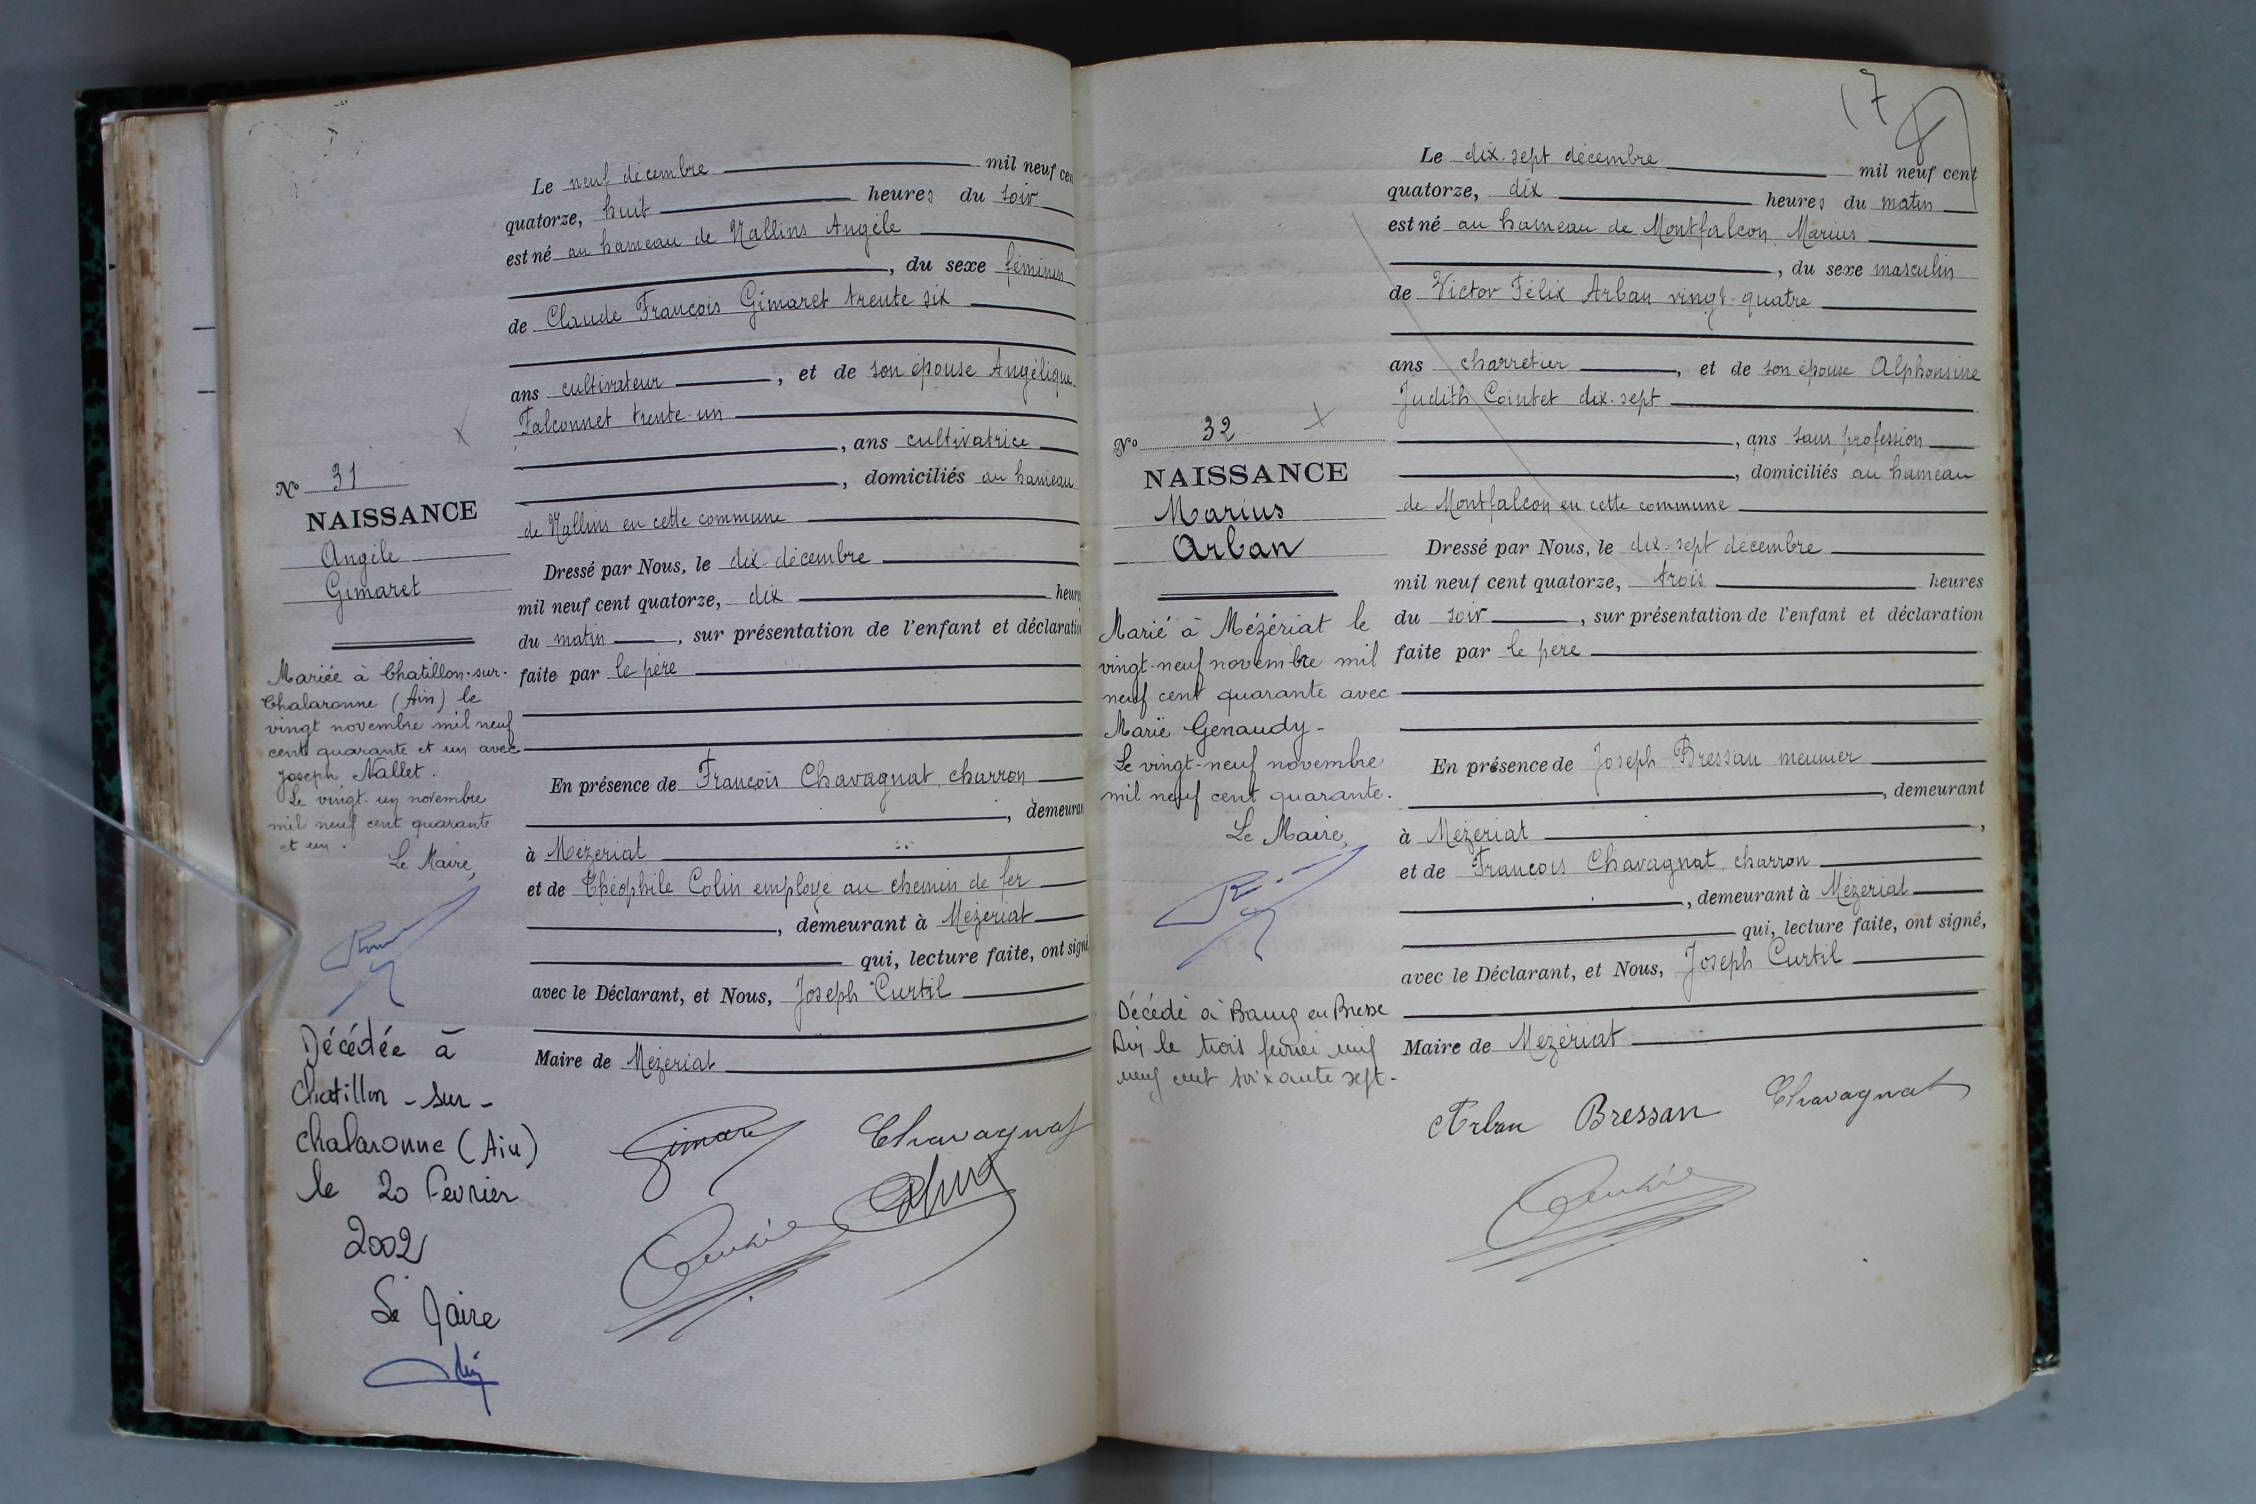 Le neuf décembre mil neuf cen
quatorze, huit heures du soir
est né au hameau de Vallins Angèle
, du sexe féminin
de Claude François Gimaret trente six
ans cultivateur , et de son épouse Angélique
Falconnet trente-un
, ans cultivatrice
, domiciliés au hameau
de Vallins en cette commune
Dressé par Nous, le dix décembre
mil neuf cent quatorze, dix heures
du matin , sur présentation de l'enfant et déclaratio
faite par le père
En présence de François Chavagnat charron
, demeuran
à Mézériat
et de Théophile Colin employé au chemin de fer
, demeurant à Mézériat
qui, lecture faite, ont signé
avec le Déclarant, et Nous, Joseph Curtil
Maire de Mézériat
Gimaret Chavagnat
Nº 31
NAISSANCE
Angèle
Gimaret
Mariée à Chatillon-sur-
Chalaronne (Ain) le
vingt novembre mil neuf
cent quarante et un avec
Joseph Nallet.
Le vingt-un novembre
mil neuf cent quarante
et un.
Le Maire,
Décédée à
Chatillon-sur-
chalaronne (Ain)
le 20 Fevrier
2002
Le Maire
17
Le dix-sept décembre mil neuf cent
quatorze, dix heures du matin
est né au hameau de Montfalcon Marius
, du sexe masculin
de Victor Félix Arban vingt-quatre
ans charretier , et de son épouse Alphonsine
Judith Cointet dix-sept
, ans sans profession
, domiciliés au hameau
de Montfalcon en cette commune
Dressé par Nous, le dix-sept décembre
mil neuf cent quatorze, trois heures
du soir , sur présentation de l'enfant et déclaration
faite par le père
En présence de Joseph Bressan meunier
, demeurant
à Mézériat ,
et de François Chavagnat charron
, demeurant à Mézériat
qui, lecture faite, ont signé,
avec le Déclarant, et Nous, Joseph Curtil
Maire de Mézériat
Arban Bressan Chavagnat
Nº 32
NAISSANCE
Marius
Arban
Marié à Mézériat le
vingt-neuf novembre mil
neuf cent quarante avec
Marie Genaudy-
Le vingt-neuf novembre
mil neuf cent quarante.
Le Maire,
Décédé à Bourg en Bresse
Ain le trois février mil
neuf cent soixante sept-